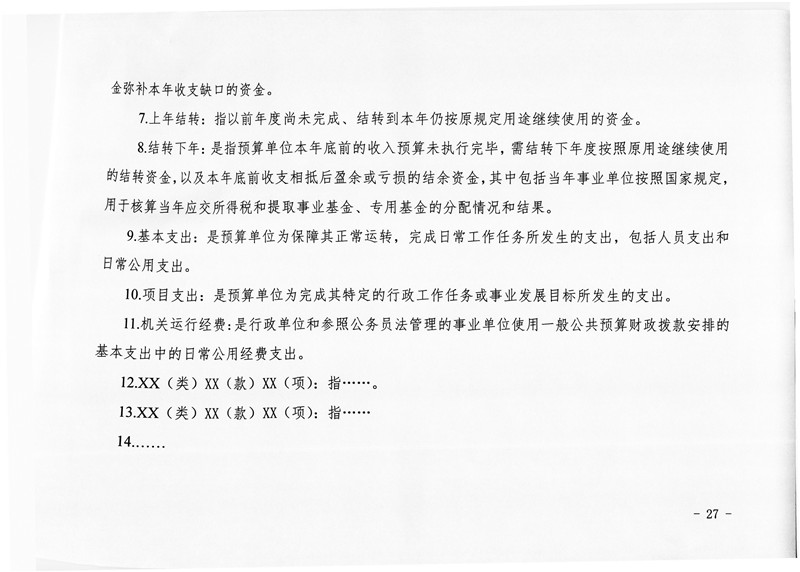 金弥补本年收支缺口的资金。
7.上年结转：指以前年度尚未完成、结转到本年仍按原规定用途继续使用的资金。
8.结转下年：是指预算单位本年底前的收入预算未执行完毕，需结转下年度按照原用途继续使用
的结转资金，以及本年底前收支相抵后盈余或亏损的结余资金，其中包括当年事业单位按照国家规定，
用于核算当年应交所得税和提取事业基金、专用基金的分配情况和结果。
9.基本支出：是预算单位为保障其正常运转，完成日常工作任务所发生的支出，包括人员支出和
日常公用支出。
10.项目支出：是预算单位为完成其特定的行政工作任务或事业发展目标所发生的支出。
11.机关运行经费：是行政单位和参照公务员法管理的事业单位使用一般公共预算财政拨款安排的
基本支出中的日常公用经费支出。
12.XX（类）XX（款）XX（项）：指……。
13.XX（类）XX（款）XX（项）：指……
14.……
- 27 -